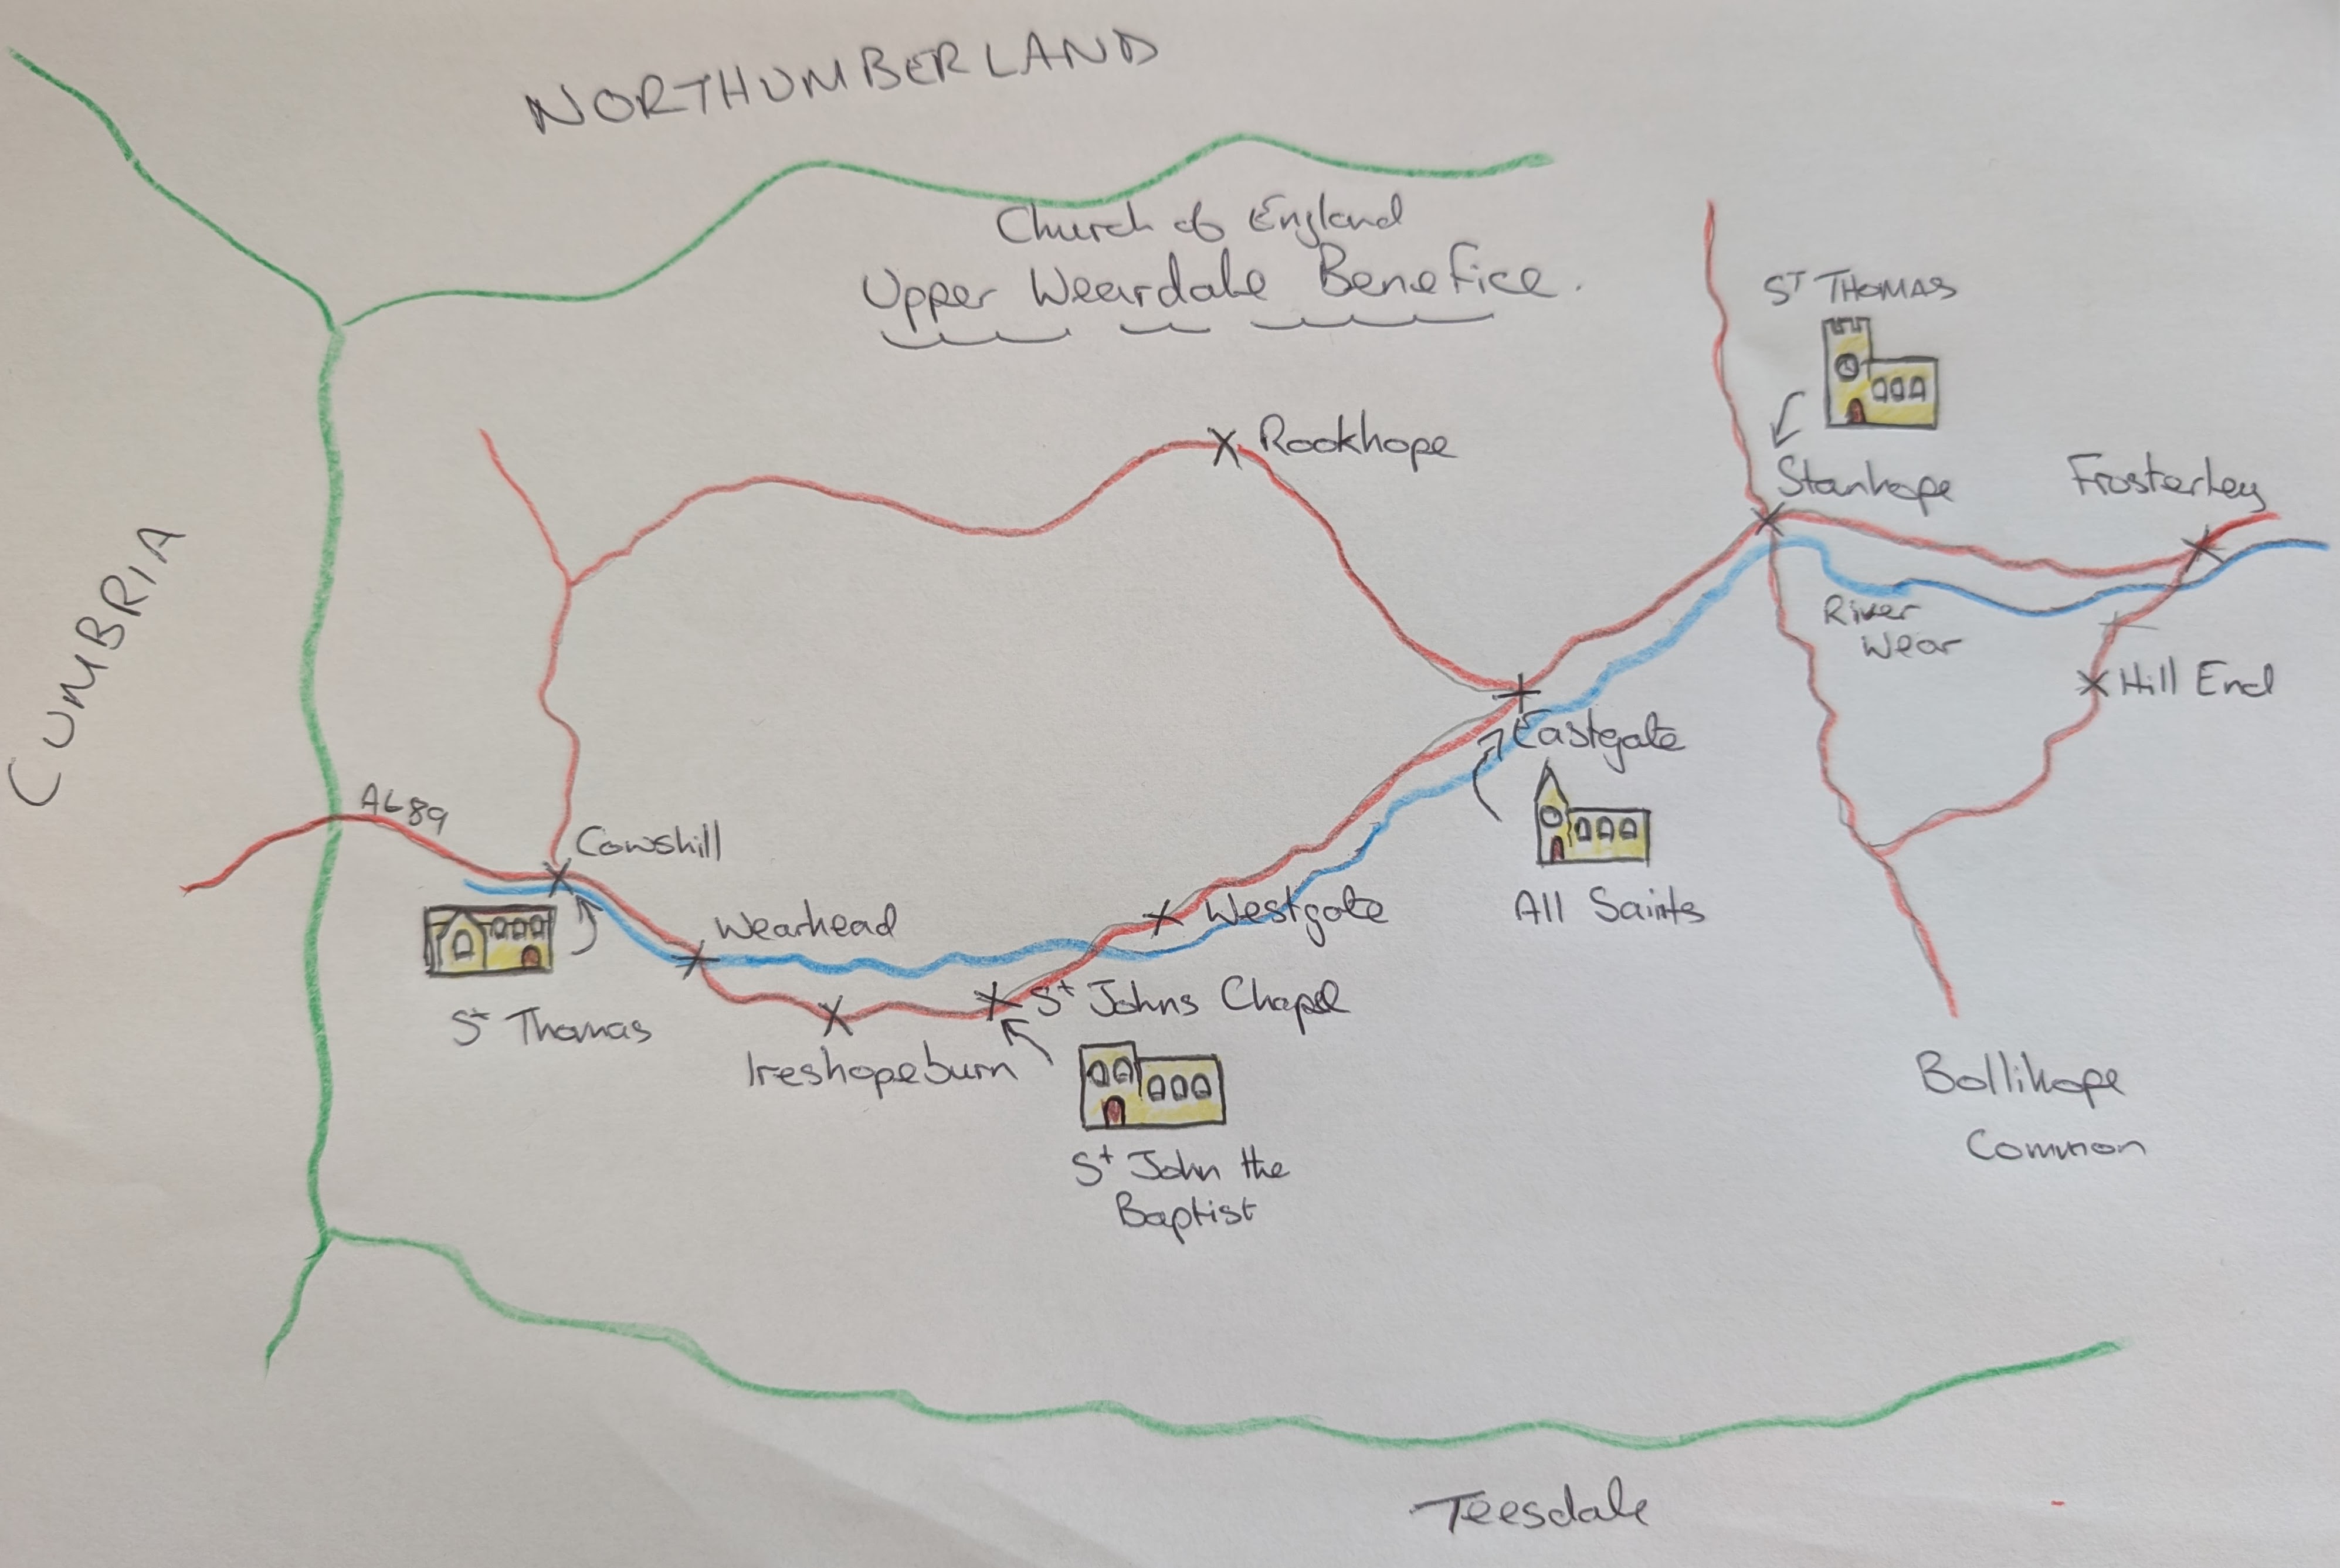 NORTHUMBERLAND
Church of England
Upper Weardale Benefice.
ST THOMAS
Rookhope
Stanhope
Frosterley
CUMBRIA
River
Wear
Hill End
Eastgate
A689
Cowshill
All Saints
Wearhead
Westgate
St Johns Chapel
St Thomas
Ireshopeburn
Bollihope
Common
St John the
Baptist
Teesdale